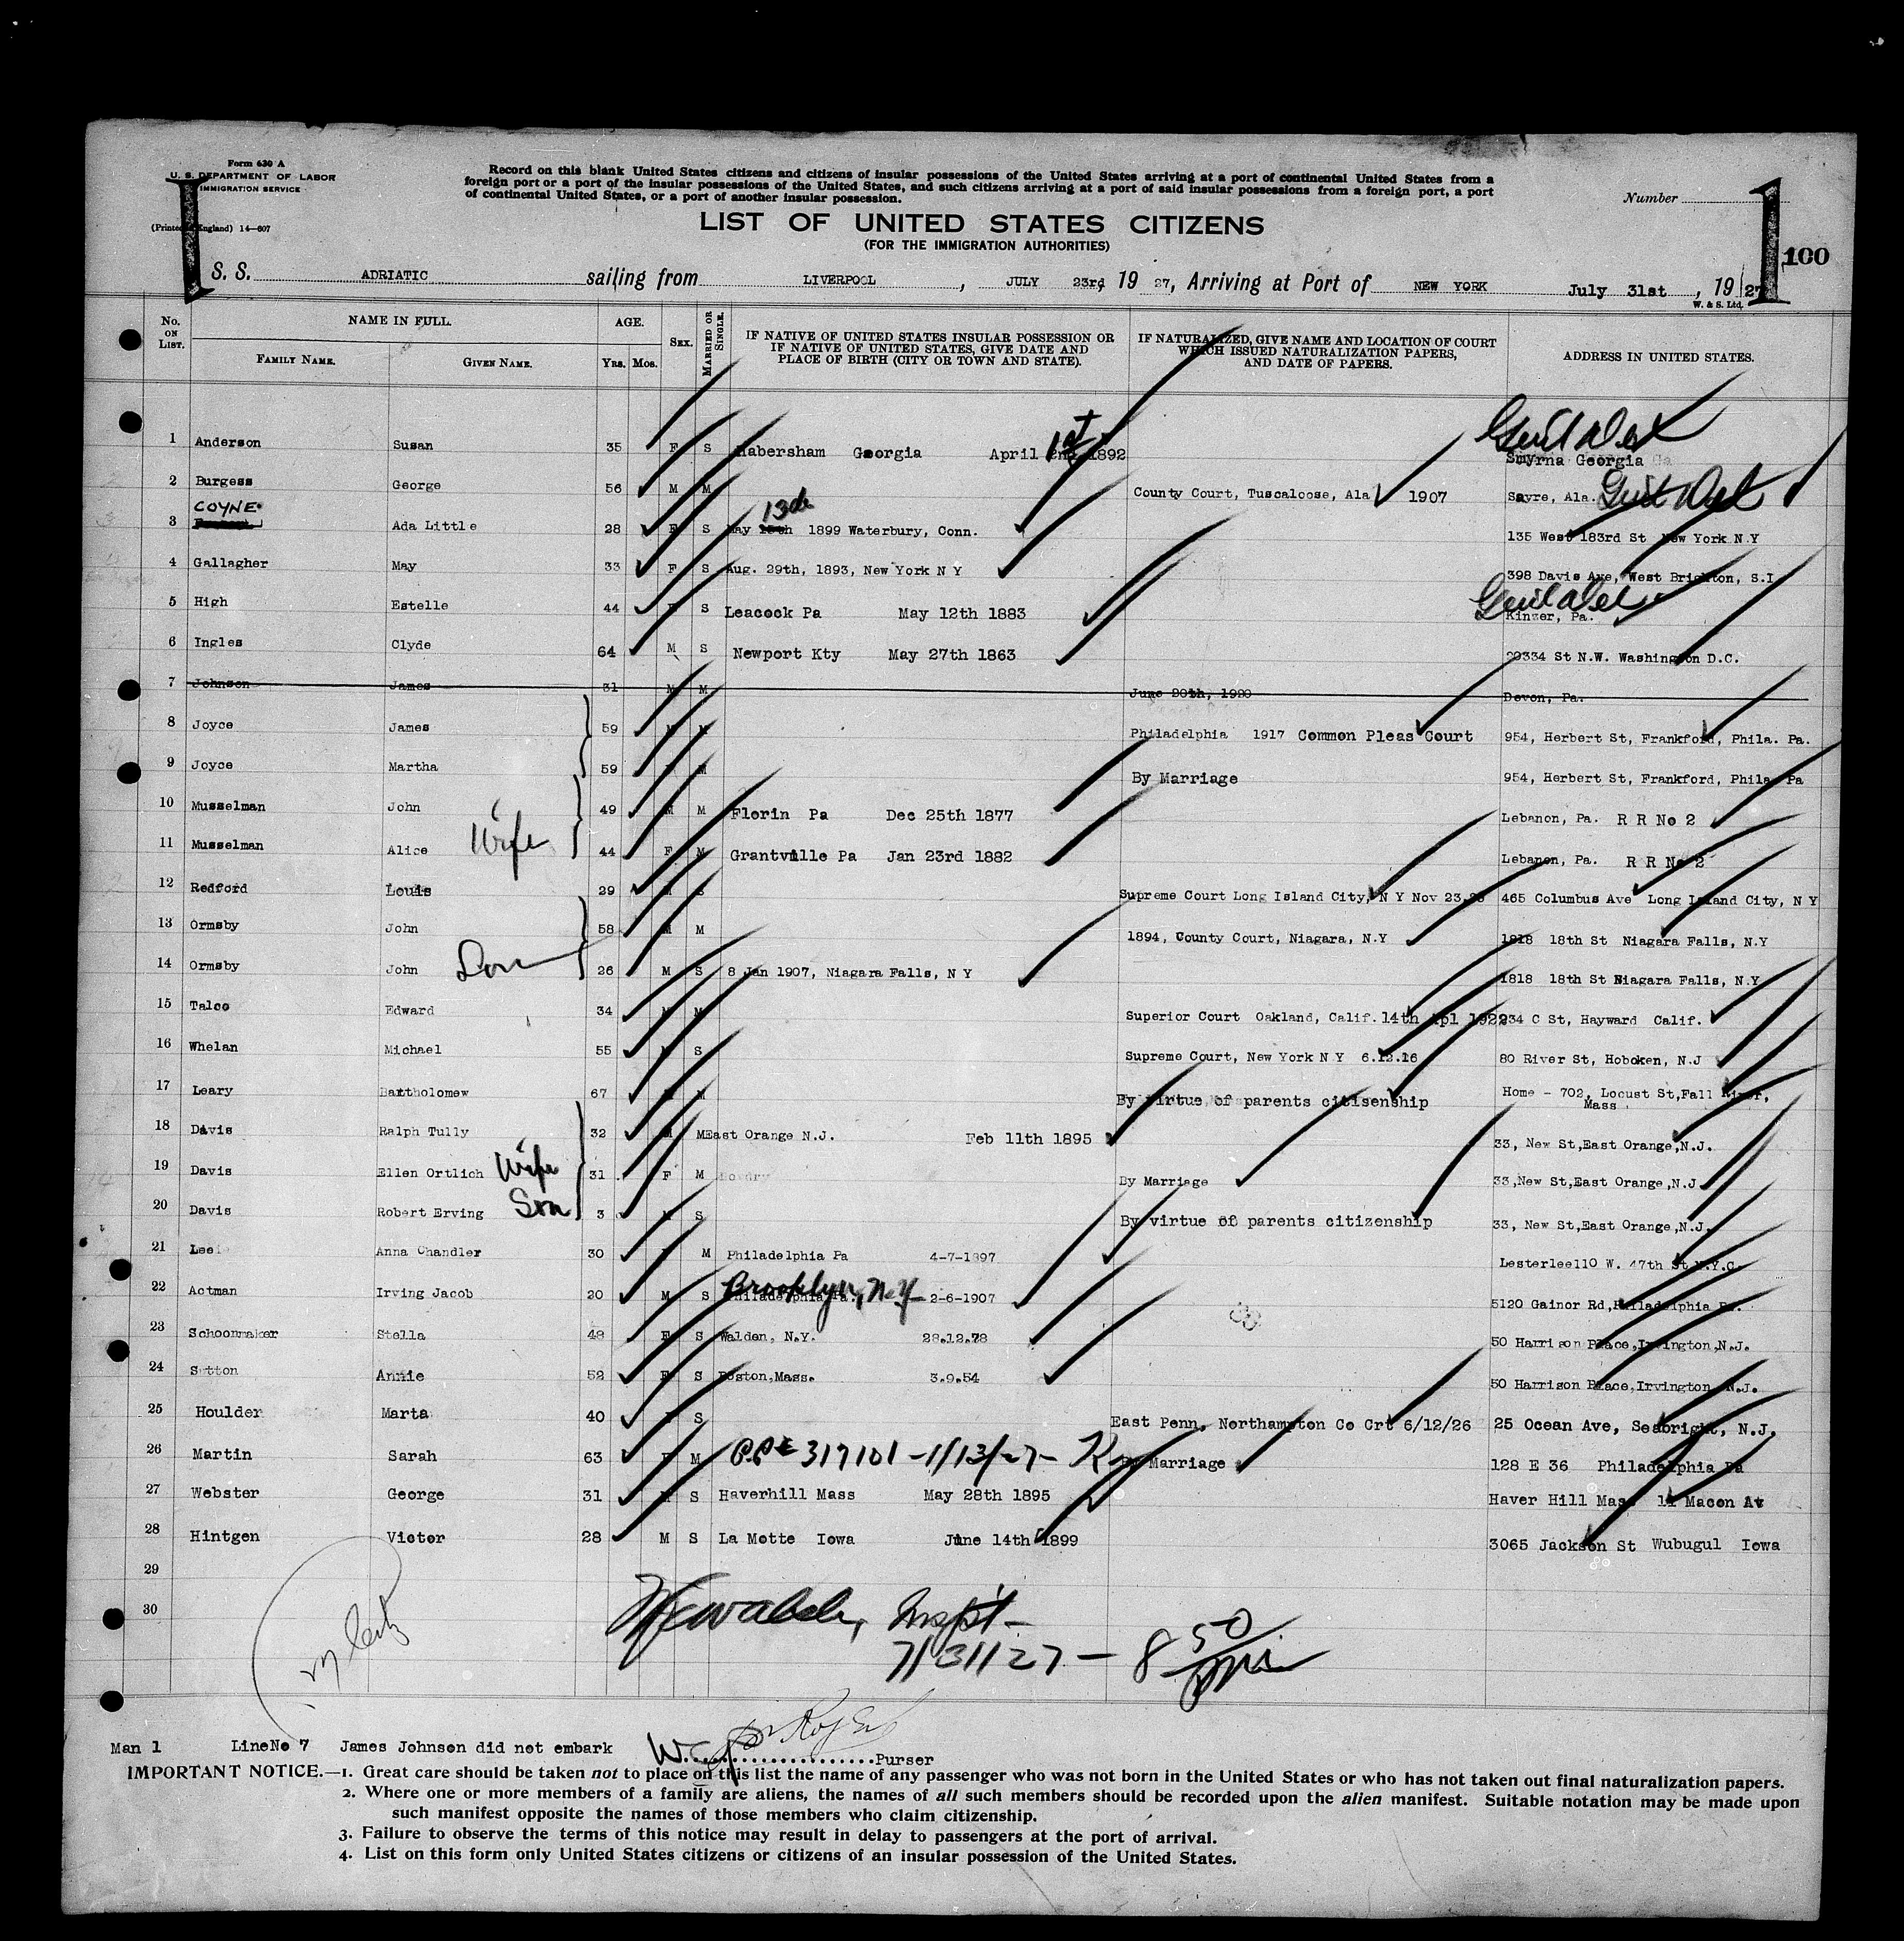 Form 630 A
U. S. DEPARTMENT OF LABOR
IMMIGRATION SERVICE
(Printed England) 14—607
Record on this blank United States citizens and citizens of insular possessions of the United States arriving at a port of continental United States from a
foreign port or a port of the insular possessions of the United States, and such citizens arriving at a port of said insular possessions from a foreign port, a port
of continental United States, or a port of another insular possession.
Number
LIST OF UNITED STATES CITIZENS
(FOR THE IMMIGRATION AUTHORITIES)
1 1 100
S. S. ADRIATIC sailing from LIVERPOOL, JULY 23rd, 19 27, Arriving at Port of NEW YORK July 31st, 19 27
W. & S. Ltd.
No. ON LIST. NAME IN FULL. FAMILY NAME. GIVEN NAME. AGE. Yrs. Mos. SEX. MARRIED OR SINGLE. IF NATIVE OF UNITED STATES INSULAR POSSESSION OR IF NATIVE OF UNITED STATES, GIVE DATE AND PLACE OF BIRTH (CITY OR TOWN AND STATE). IF NATURALIZED, GIVE NAME AND LOCATION OF COURT WHICH ISSUED NATURALIZATION PAPERS, AND DATE OF PAPERS. ADDRESS IN UNITED STATES.
1 Anderson Susan 35 F S Habersham Georgia April 1st 2nd 1892 Smyrna Georgia
2 Burgess George 56 M M County Court, Tuscaloose, Ala 1907 Sayre, Ala.
3 COYNE Ada Little 28 F S May 13th 1899 Waterbury, Conn. 135 West 183rd St New York N.Y
4 Gallagher May 33 F S Aug. 29th, 1893, New York N Y 398 Davis Ave, West Brighton, S.I
5 High Estelle 44 F S Leacock Pa May 12th 1883 Kinzer, Pa.
6 Ingles Clyde 64 M S Newport Kty May 27th 1863 29334 St N.W. Washington D.C.
7 Johnson James 31 M M June 20th, 1920 Devon, Pa.
8 Joyce James 59 M M Philadelphia 1917 Common Pleas Court 954, Herbert St, Frankford, Phila. Pa.
9 Joyce Martha 59 M By Marriage 954, Herbert St, Frankford, Phila Pa
10 Musselman John 49 M M Florin Pa Dec 25th 1877 Lebanon, Pa. R R No 2
11 Musselman Alice Wife 44 F M Grantville Pa Jan 23rd 1882 Lebanon, Pa. R R No 2
12 Redford Louis 29 M S Supreme Court Long Island City, N Y Nov 23 465 Columbus Ave Long Island City, N Y
13 Ormsby John 58 M M 1894, County Court, Niagara, N.Y 1818 18th St Niagara Falls, N.Y
14 Ormsby John Son 26 M S 8 Jan 1907, Niagara Falls, N Y 1818 18th St Niagara Falls, N.Y
15 Talco Edward 34 M M Superior Court Oakland, Calif. 14th Apl 1922 934 C St, Hayward Calif.
16 Whelan Michael 55 M S Supreme Court, New York N Y 6.12.16 80 River St, Hoboken, N.J
17 Leary Bartholomew 67 M M By virtue of parents citisenship Home - 702, Locust St, Fall River, Mass
18 Davis Ralph Tully 32 M M East Orange N.J. Feb 11th 1895 33, New St, East Orange, N.J.
19 Davis Ellen Ortlich Wife 31 F M By Marriage 33, New St, East Orange, N.J
20 Davis Robert Erving Son 3 M S By virtue of parents citizenship 33, New St, East Orange, N.J.
21 Lee Anna Chandler 30 M Philadelphia Pa 4-7-1897 Lesterlee110 W. 47th St N.Y.C.
22 Actman Irving Jacob 20 M S Brooklyn, N.Y. Philadelphia Pa. 2-6-1907 5120 Gainor Rd, Philadelphia Pa.
23 Schoonmaker Stella 48 F S Walden, N.Y. 28.12.78 50 Harrison Place, Irvington, N.J.
24 Sutton Annie 52 F S Boston, Mass. 3.9.54 50 Harrison Place, Irvington, N.J.
25 Houlder Marta 40 F S East Penn, Northampton Co Crt 6/12/26 25 Ocean Ave, Seabright, N.J.
26 Martin Sarah 63 F M 317101 - 1/13/27 - By Marriage 128 E 36 Philadelphia Pa
27 Webster George 31 M S Haverhill Mass May 28th 1895 Haver Hill Mass 14 Macon Av
28 Hintgen Victor 28 M S La Motte Iowa June 14th 1899 3065 Jackson St Wubugul Iowa
29
30
Inspt -
7/31/27 - 8 50
Man 1 LineNo 7 James Johnson did not embark Purser
IMPORTANT NOTICE.—1. Great care should be taken not to place on this list the name of any passenger who was not born in the United States or who has not taken out final naturalization papers.
2. Where one or more members of a family are aliens, the names of all such members should be recorded upon the alien manifest. Suitable notation may be made upon
such manifest opposite the names of those members who claim citizenship.
3. Failure to observe the terms of this notice may result in delay to passengers at the port of arrival.
4. List on this form only United States citizens or citizens of an insular possession of the United States.